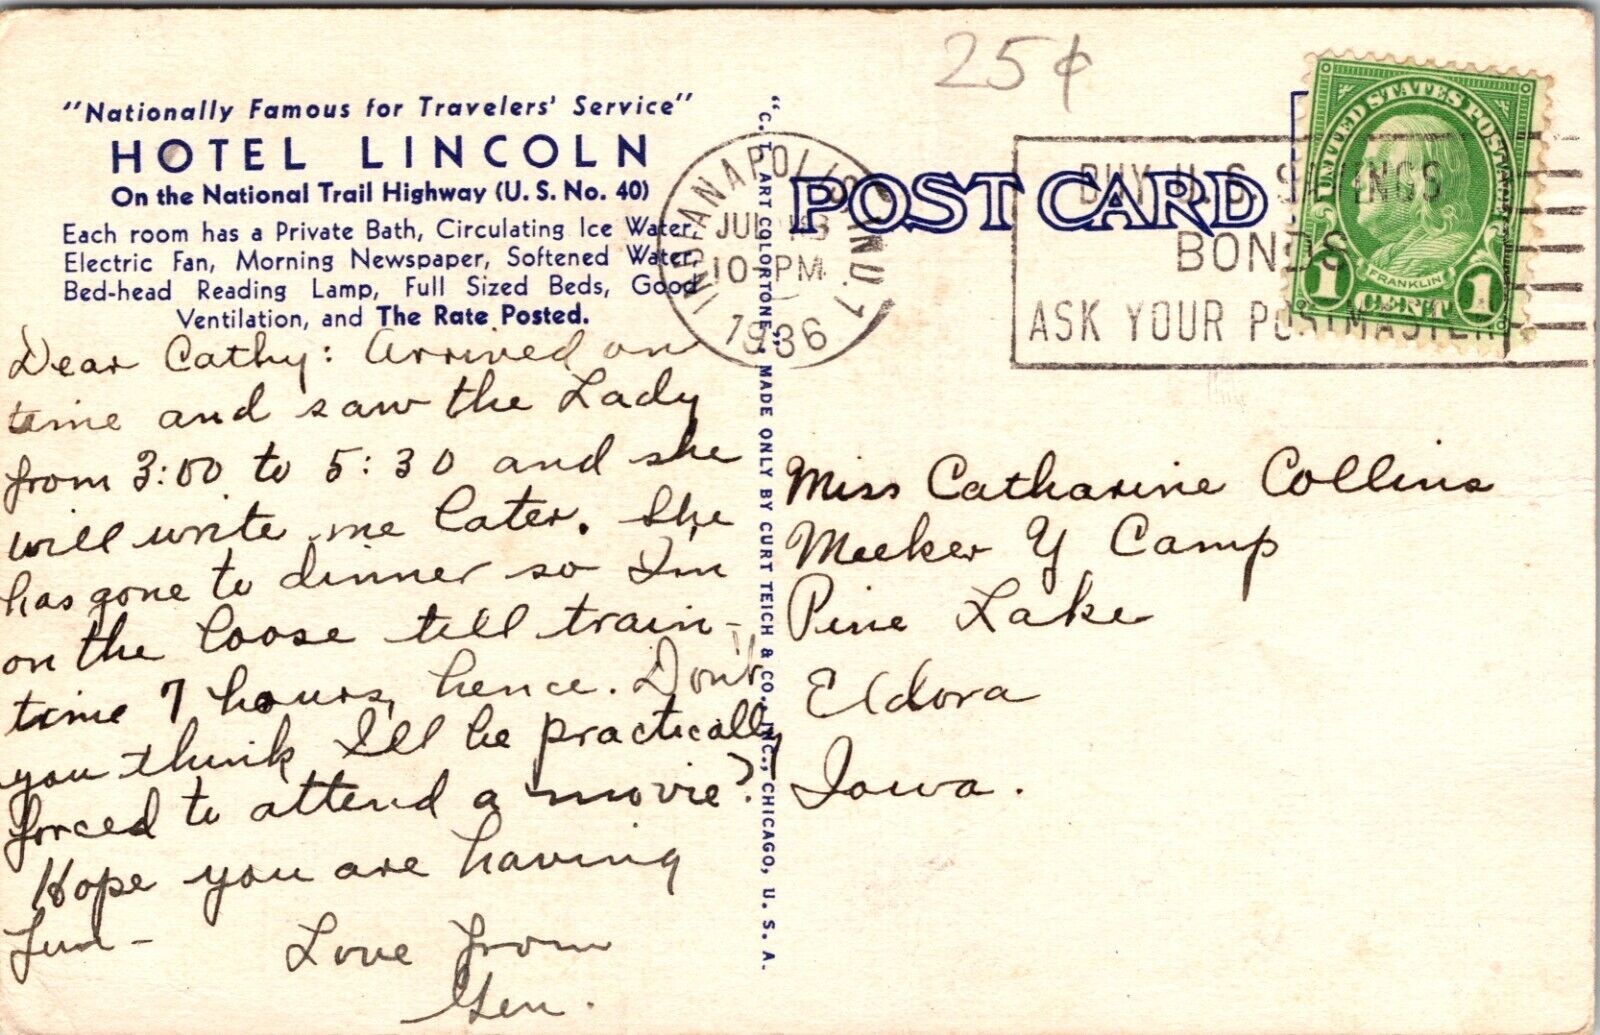 25¢
"Nationally Famous for Travelers' Service"
HOTEL LINCOLN
On the National Trail Highway (U. S. No. 40)
Each room has a Private Bath, Circulating Ice Water,
Electric Fan, Morning Newspaper, Softened Water,
Bed-head Reading Lamp, Full Sized Beds, Good
Ventilation, and The Rate Posted.
Dear Cathy: Arrived on
time and saw the Lady
from 3:00 to 5:30 and she
will write me later. She
has gone to dinner so I'm
on the loose till train-
time 7 hours, hence. Don't
you think I'll be practically
forced to attend a movie?
Hope you are having
fun -
Love from
Gen.
"C. T. ART COLORTONE" MADE ONLY BY CURT TEICH & CO., INC., CHICAGO, U. S. A.
INDIANAPOLIS, IND. 1
JUL
10 - PM
1936
POST CARD
BUY U.S. SAVINGS
BONDS
ASK YOUR POSTMASTER
UNITED STATES POSTAGE
FRANKLIN
1 CENT 1
Miss Catharine Collins
Meeker Y Camp
Pine Lake
Eldora
Iowa.